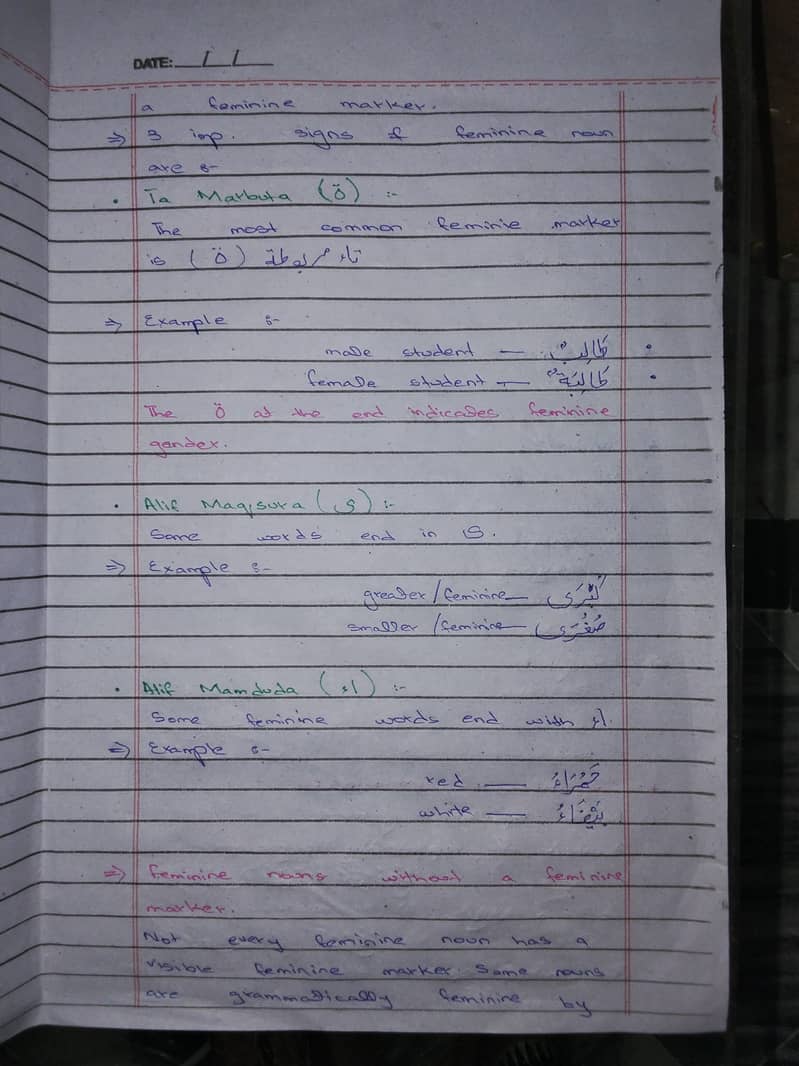 DATE: / /
a feminine marker.
⇒ 3 imp. signs of feminine noun
are :-
• Ta Marbuta (ة) :-
The most common feminie marker
is (ة) تاء مربوطة
⇒ Example :-
male student — طَالِبٌ •
female student — طَالِبَةٌ •
The ة at the end indicates feminine
gender.
• Alif Maqsura (ى) :-
Some words end in ى.
⇒ Example :-
greater/feminine — كُبْرَى
smaller/feminine — صُغْرَى
• Alif Mamduda (اء) :-
Some feminine words end with اء.
⇒ Example :-
red — حَمْرَاءُ
white — بَيْضَاءُ
⇒ Feminine nouns without a feminine
marker.
Not every feminine noun has a
visible feminine marker. Some nouns
are grammatically feminine by